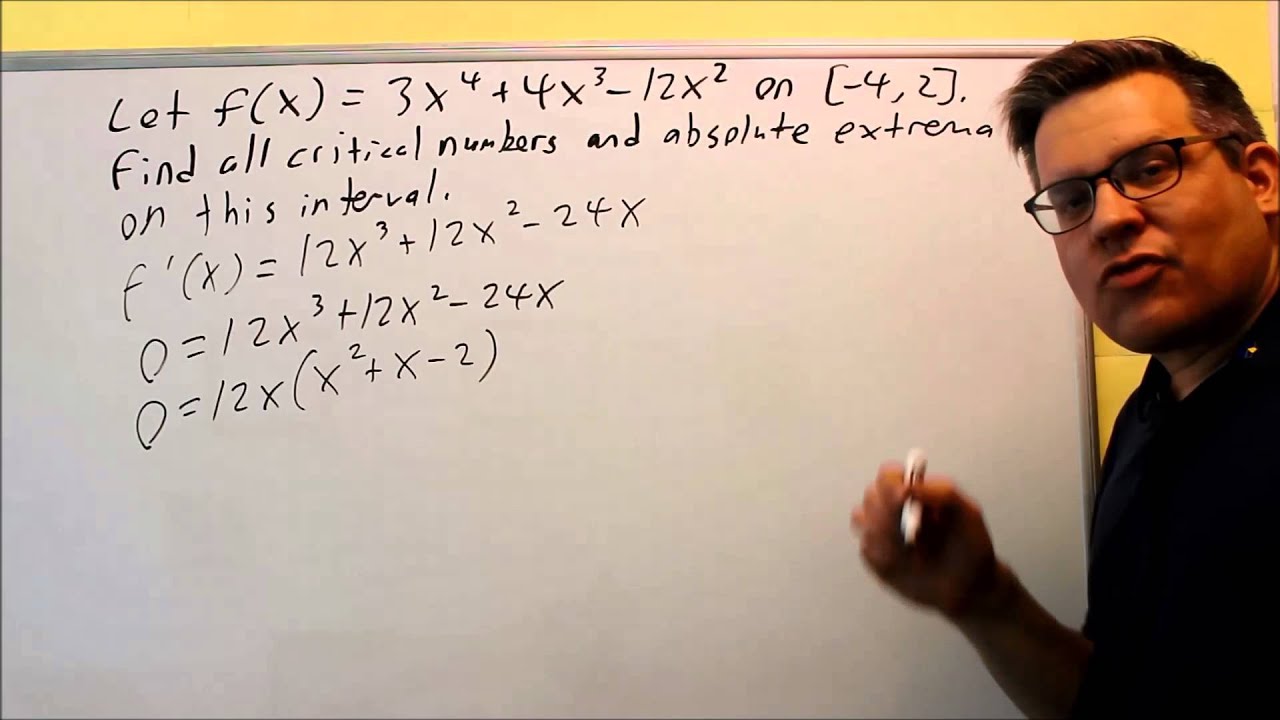 Let f(x) = 3x⁴ + 4x³ - 12x² on [-4, 2].
Find all critical numbers and absolute extrema
on this interval.
f'(x) = 12x³ + 12x² - 24x
0 = 12x³ + 12x² - 24x
0 = 12x(x² + x - 2)